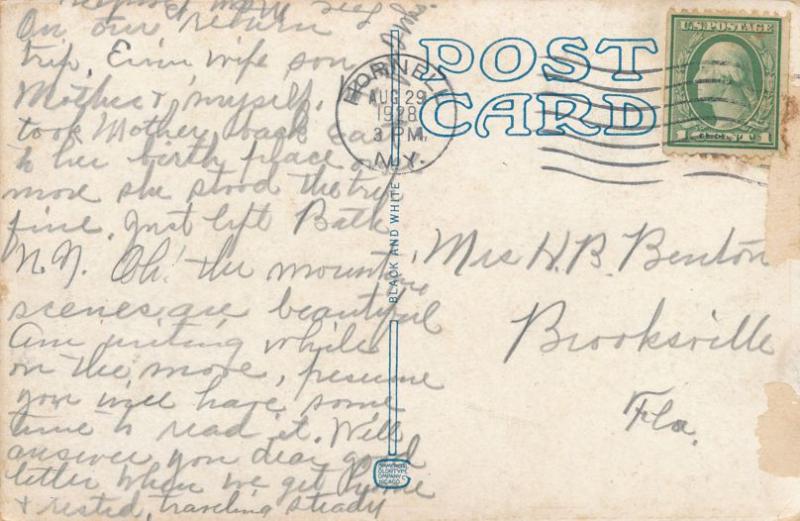 On our return
trip, Erwin wife son
Mother & myself.
took Mother back East
to her birth place once
more she stood the trip
fine. Just left Bath
N.Y. Oh! the mountain
scenes are beautiful
Am writing while
on the move, presume
you will have some
time to read it. Will
answer you dear good
letter when we get home
& rested, traveling steady
POST
CARD
HORNELL
AUG 29
1928
3 PM
N.Y.
U.S. POSTAGE
1 1
BLACK AND WHITE
Mrs H. B. Benton
Brooksville
Fla.